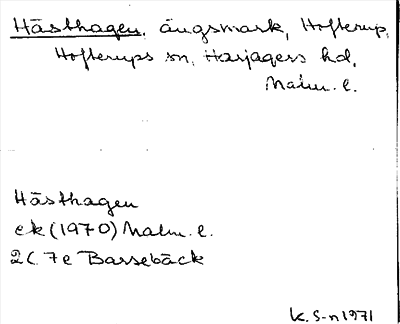 Hästhagen, ängsmark, Hofterup,
Hofterups sn, Harjagers hd,
Malm. l.
Hästhagen
ek (1970) Malm. l.
2C 7e Barsebäck
K. S-n 1971